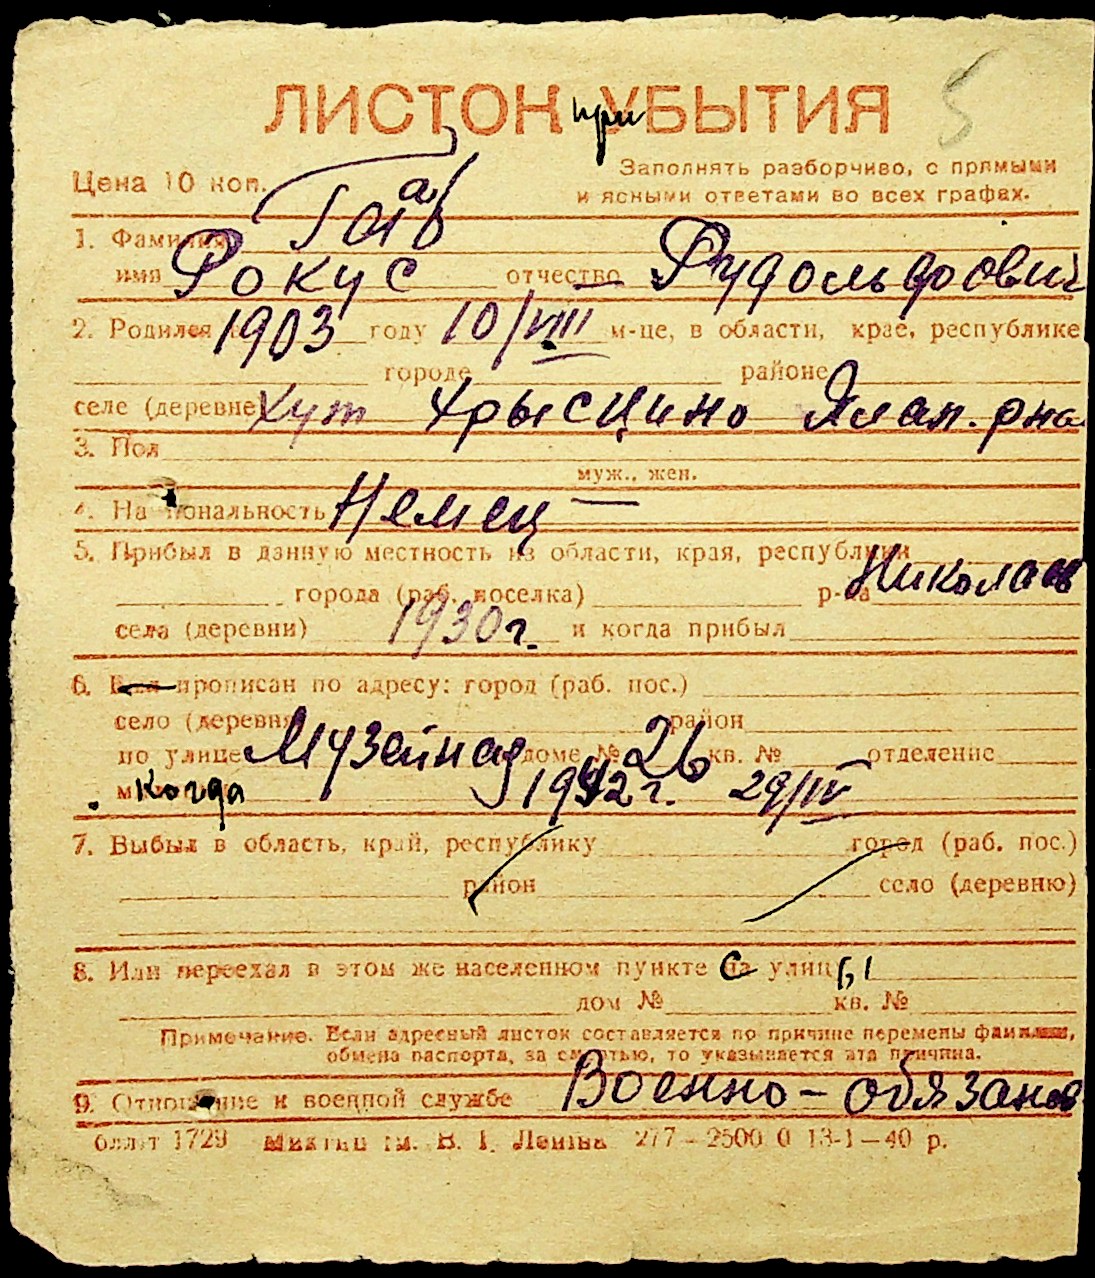 ЛИСТОК при УБЫТИЯ 5
Цена 10 коп. Заполнять разборчиво, с прямыми
и ясными ответами во всех графах.
1. Фамилия
имя Рокус отчество Рудольфович
2. Родился в 1903 году 10/VIII м-це, в области, крае, республике
городе районе
селе (деревне) Хут Хрысцино рна
3. Пол
муж., жен.
4. Национальность Немец
5. Прибыл в данную местность из области, края, республики
города (раб. поселка) р-на Николаев
села (деревни) 1930 г. и когда прибыл
6. Был прописан по адресу: город (раб. пос.)
село (деревня) район
по улице Музейная доме № 26 кв. № отделение
когда 1942 г. 29/IV
7. Выбыл в область, край, республику город (раб. пос.)
район село (деревню)
8. Или переехал в этом же населенном пункте с на улицы
дом № кв. №
Примечание. Если адресный листок составляется по причине перемены фамилии,
обмена паспорта, за смертью, то указывается эта причина.
9. Отношение к военной службе Военно-обязанов
1729 ім. В. І. Леніна 277-2500 0 13-1-40 р.